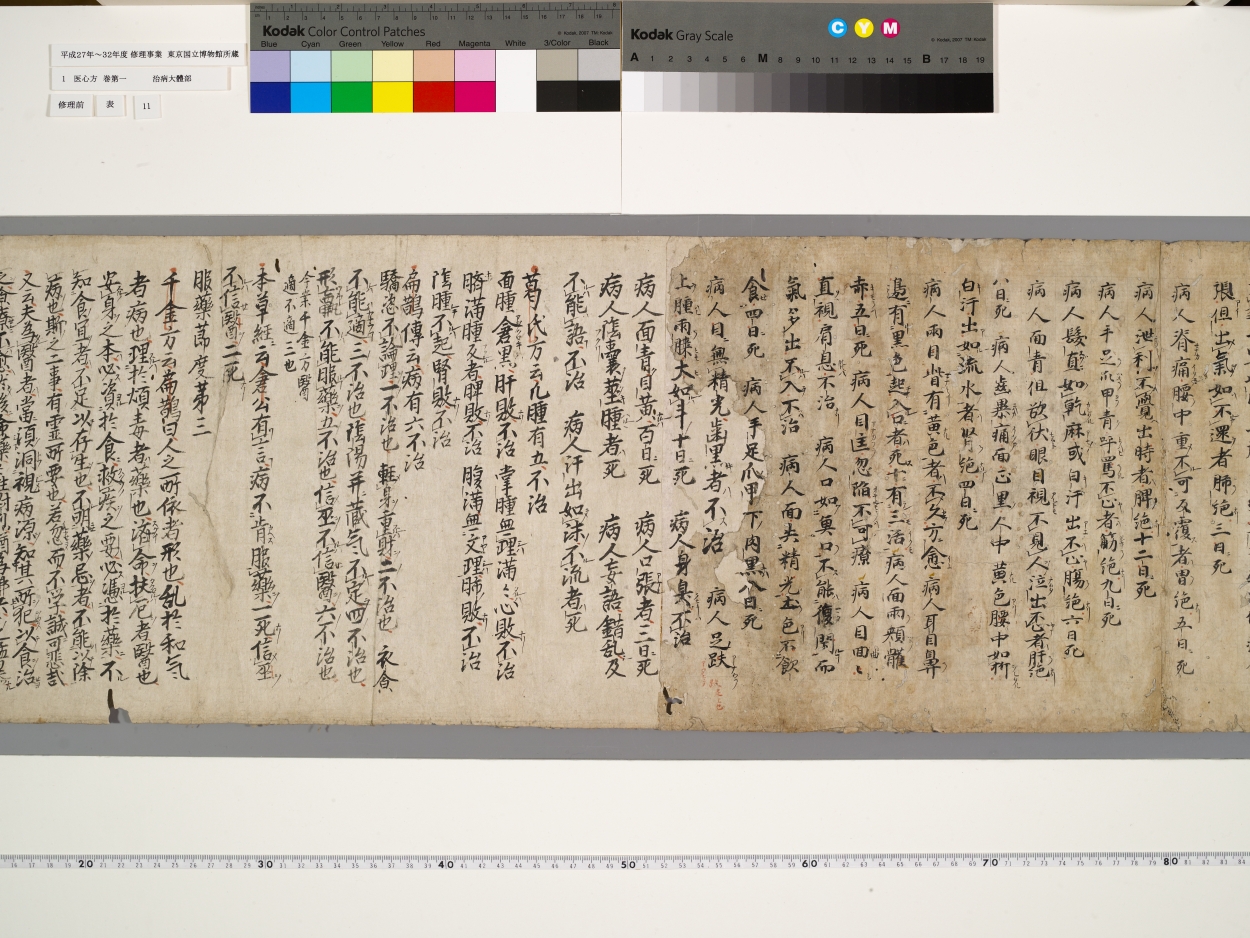 平成27年～32年度 修理事業 東京国立博物館所蔵
1 医心方 巻第一 治病大體部
修理前 表 11
Kodak Color Control Patches
© Kodak, 2007 TM: Kodak
Blue Cyan Green Yellow Red Magenta White 3/Color Black
Kodak Gray Scale
C Y M
© Kodak, 2007 TM: Kodak
A 1 2 3 4 5 6 M 8 9 10 11 12 13 14 15 B 17 18 19
張但出氣如不還者肺絶三日死
病人泄利不覺出時者脾絶十二日死
病人手足爪甲青呼罵不止者筋絶九日死
病人髮直如乾麻或白汗出不止腸絶六日死
病人面青但欲伏眼目視不見人泣出不止者肝絶
八日死 病人齒暴痛面正黒人中黄色腰中如折
白汗出如流水者腎絶四日死
病人兩目眥有黄色者不久方愈 病人耳目鼻
邊有黒色起入口者死十有三活 病人面兩頬
赤五日死 病人目匡忽陥不可療 病人目面
直視肩息不治 病人口如魚口不能復閇而
氣多出不入不治 病人面失精光土色不飲
食四日死 病人手足爪甲下肉黒八日死
病人目無精光歯黒者不治 病人足趺
上腫兩膝大如斗十日死 病人身臭不治
病人面青目黄百日死 病人口張者三日死
病人陰囊莖腫者死 病人妄語錯乱及
不能語不治 病人汗出如沫不流者死
葛氏方云凡腫有五不治
面腫倉黒肝敗不治 掌腫無理滿々心敗不治
臍滿腫反者脾敗不治 腹滿無文理肺敗不治
陰腫不起腎敗不治
扁鵲傳云病有六不治
驕恣不論理一不治也 輕身重財二不治也 衣食
不能適三不治也 陰陽并蔵氣不定四不治也
形羸不能服藥五不治也 信巫不信醫六不治也
今案千金方醫
適不適三也
本草經云倉公有言病不肯服藥一死信巫
不信醫二死
服藥節度第三
千金方云扁鵲曰人之所依者形也乱於和氣
者病也理於煩毒者藥也濟命扶危者醫也
安身之本必資於食救疾之要必憑於藥不
知食宜者不足以存生也不明藥忌者不能以除
病也斯之二事有靈所要也若忽而不学誠可悲哉
又云夫為醫者當須洞視病源知其所犯以食治
20 30 40 50 60 70 80